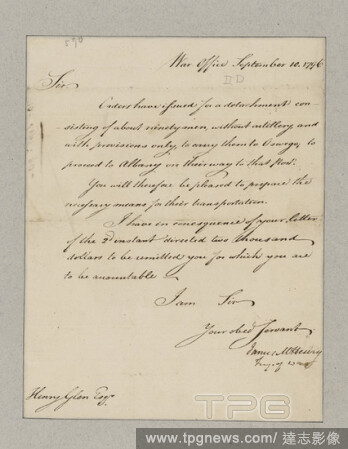 War Office September 10. 1796
Sir
Orders have issued for a detachment con-
sisting of about ninety men, without artillery and
with provisions only, to carry them to Oswego, to
proceed to Albany on their way to that post.
You will therefore be pleased to prepare the
necessary means for their transportation.
I have in consequence of your letter
of the 2d instant directed two thousand
dollars to be remitted you for which you are
to be accountable
I am Sir
Your obed Servant
James McHenry
Henry Glen Esqr
TPG
www.tpgnews.com / 達志影像